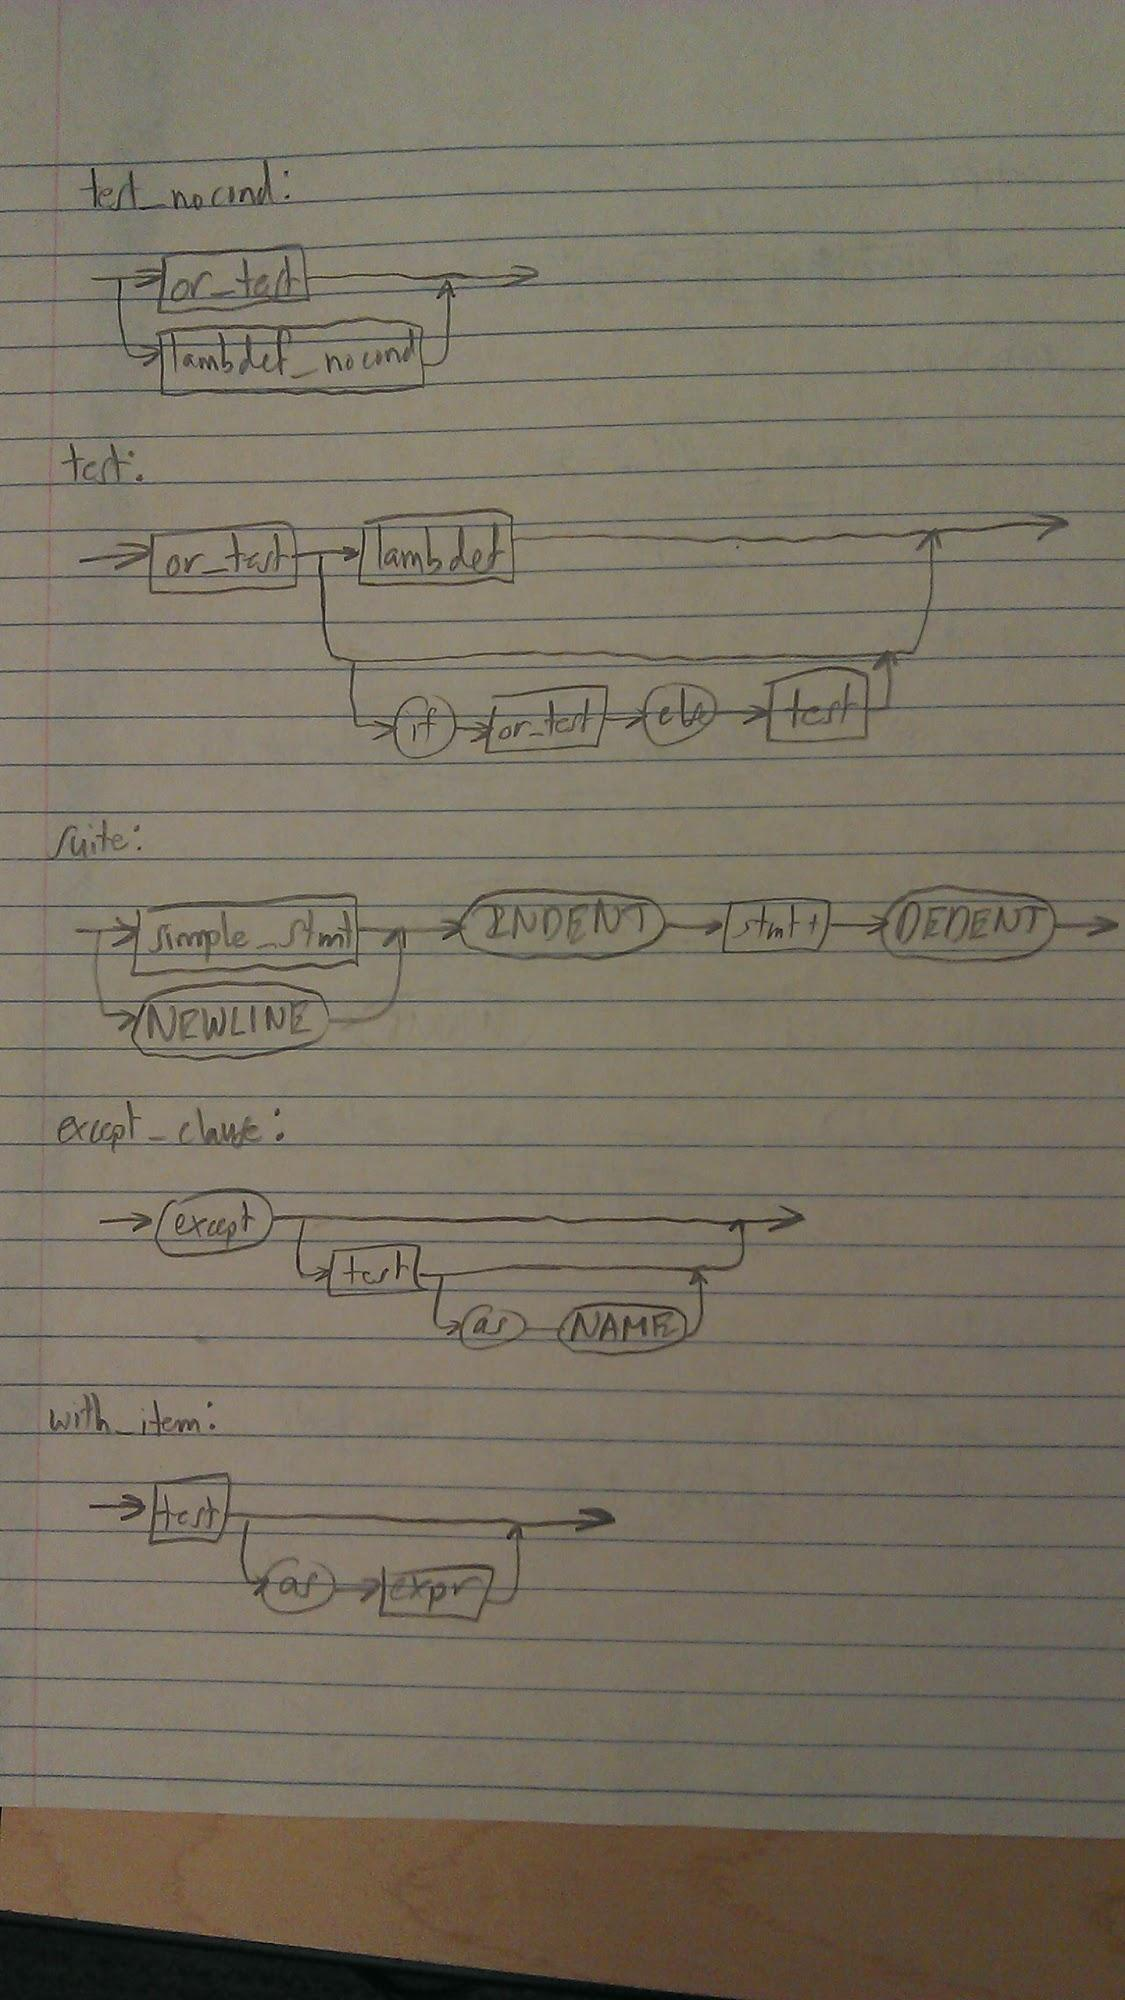 test_nocond:
or_test
lambdef_nocond
test:
or_test lambdef
if or_test else test
suite:
simple_stmt INDENT stmt+ DEDENT
NEWLINE
except_clause:
except
test
as NAME
with_item:
test
as expr